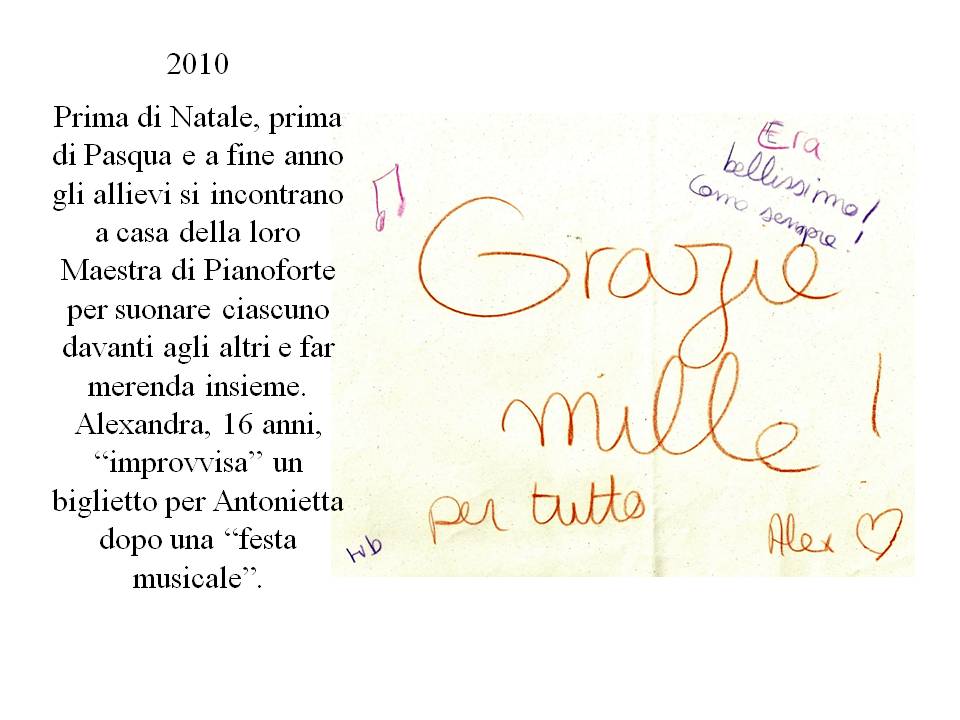 2010
Prima di Natale, prima
di Pasqua e a fine anno
gli allievi si incontrano
a casa della loro
Maestra di Pianoforte
per suonare ciascuno
davanti agli altri e far
merenda insieme.
Alexandra, 16 anni,
“improvvisa” un
biglietto per Antonietta
dopo una “festa
musicale”.
Era
bellissimo!
Como sempre!
Grazie
mille!
per tutto
Alex